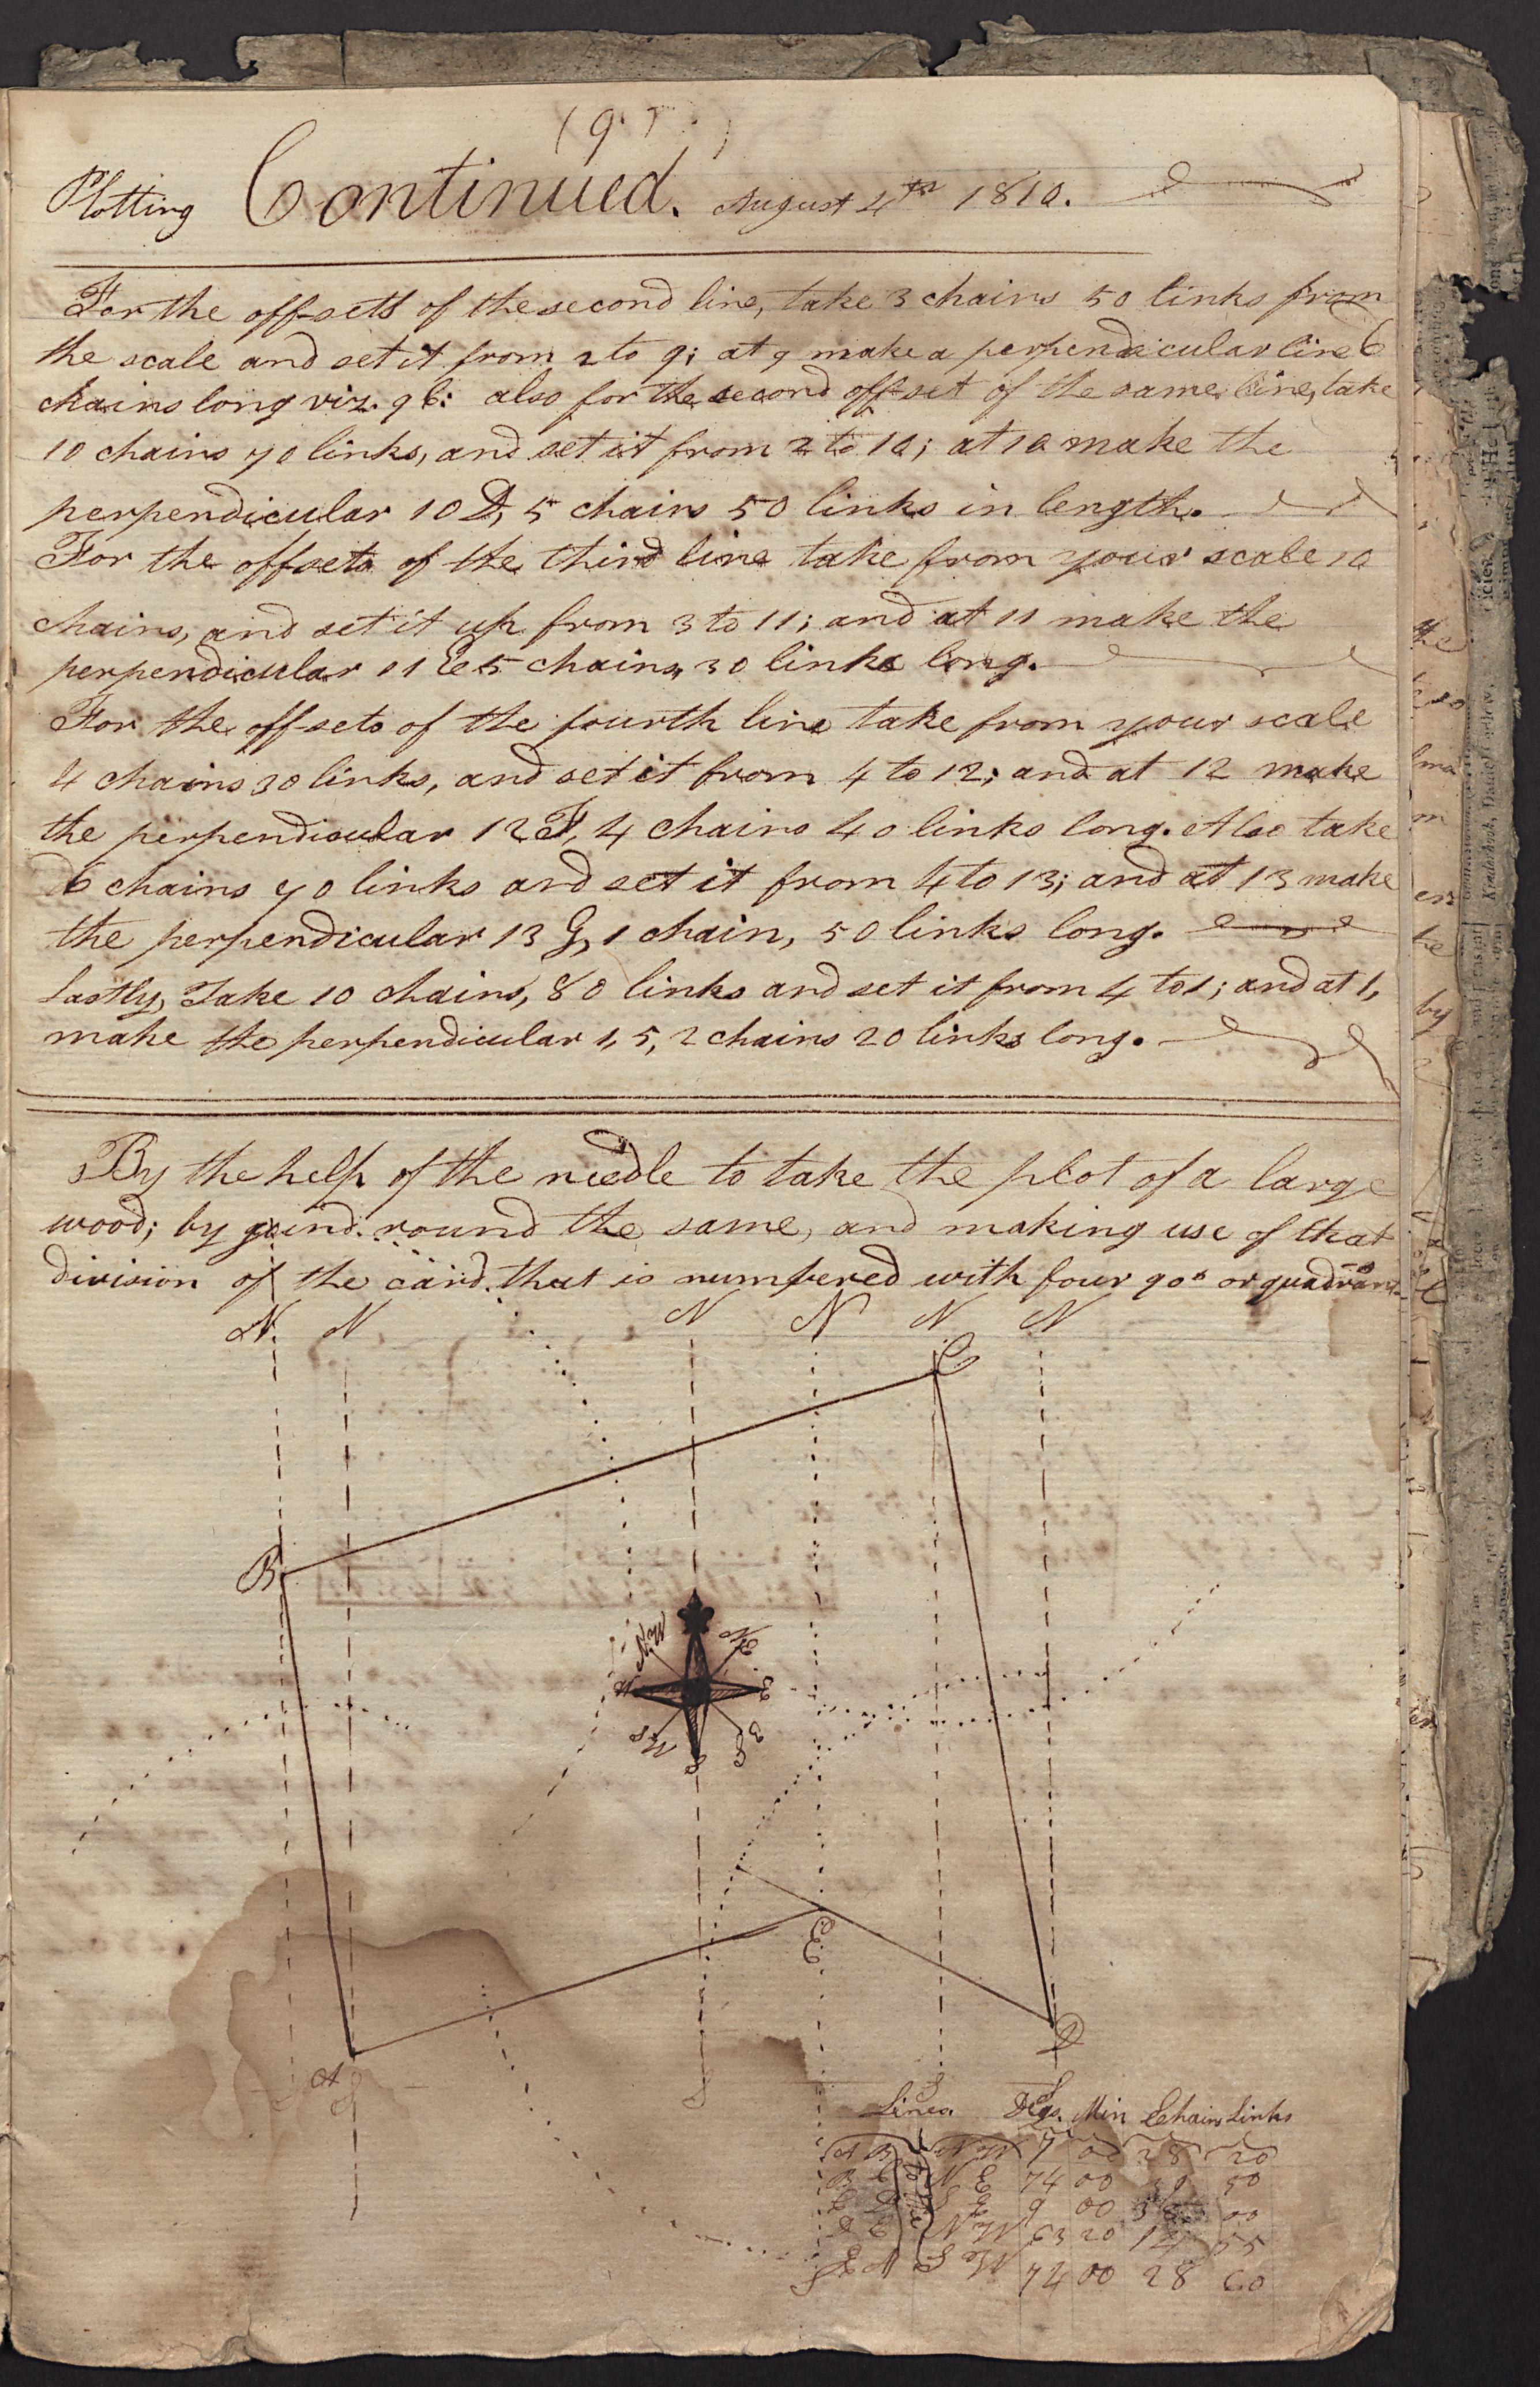 (97)
Plotting Continued. August 4th 1810.
For the offsetts of the second line, take 3 chains 50 links from
the scale and set it from 2 to 9; at 9 make a perpendicular line 6
chains long viz. 9 6: also for the second offset of the same line, take
10 chains 70 links, and set it from 2 to 10; at 10 make the
perpendicular 10 D, 5 chains 50 links in length.
For the offsets of the third line take from your scale 10
chains, and set it up from 3 to 11; and at 11 make the
perpendicular 11 E 5 chains, 30 links long.
For the offsets of the fourth line take from your scale
4 chains 30 links, and set it from 4 to 12; and at 12 make
the perpendicular 12 F, 4 chains 40 links long. Also take
6 chains 70 links and set it from 4 to 13; and at 13 make
the perpendicular 13 G, 1 chain, 50 links long.
Lastly, Take 10 chains, 80 links and set it from 4 to 1; and at 1,
make the perpendicular 1, 5, 2 chains 20 links long.
By the help of the needle to take the plot of a large
wood; by goind round the same, and making use of that
division of the card that is numbered with four 90s or quadrants
N. N N N N N
C
B
N.W N.E
W E
S.W S.E
S
E
D
A
S S S S
Lines Degs. Min Chains Links
A B to the N W 7 00 28 20
B C N E 74 00 39 50
C D S E 9 00 38 00
D E N W 63 20 14 55
S E A S W 74 00 28 60